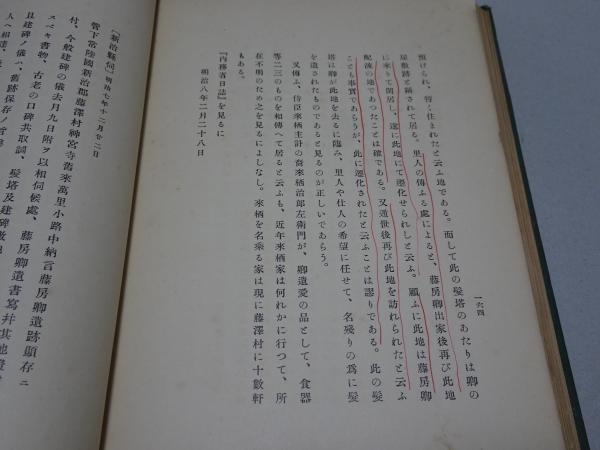 一六四
預けられ、暫く住まれたと云ふ地である。而して此の髮塔のあたりは卿の
屋敷跡と稱されて居る。里人の傳ふる處によると、藤房卿出家後再び此地
に來りて閑居し、遂に此地にて遷化せられしと云ふ。顧ふに此地は藤房卿
配流の地であつたことは確である。又遁世後再び此地を訪れられたと云ふ
ことも事實であらうが、此に遷化されたと云ふことは謬りである。此の髮
塔は卿が此地を去るに臨み、里人や仕人の希望に任せて、名殘りの爲に髮
を遺されたものであると見るのが正しいであらう。
又傳ふ、侍臣來栖主計の裔來栖治郎左衛門が、卿遺愛の品として、食器
等二三のものを相傳へて居ると云ふも、近年來栖家は何れかに行つて、所
在不明のため之を見るによしなし。來栖を名乘る家は現に藤澤村に十數軒
もある。
『内務省日誌』を見るに
明治八年二月二十八日
〔新治縣伺〕明治七年十二月廿二日
管下常陸國新治郡藤澤村神宮寺舊來萬里小路中納言藤房卿遺跡顯存ニ
付、今般建碑の儀去月九日附ヲ以相伺候處、藤房卿遺書寫幷其他證
スベキ書物、古老の口碑共取調、髮塔及建碑
且建碑ノ儀ハ、舊跡保存ノ
人へ相達